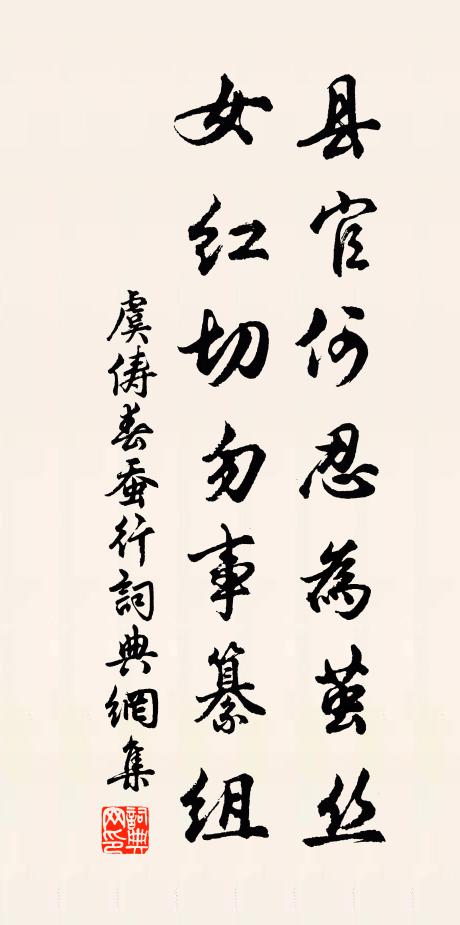 县官何忍为茧丝
女红切勿事纂组
虞俦春蚕行詞典網集
詞典网印